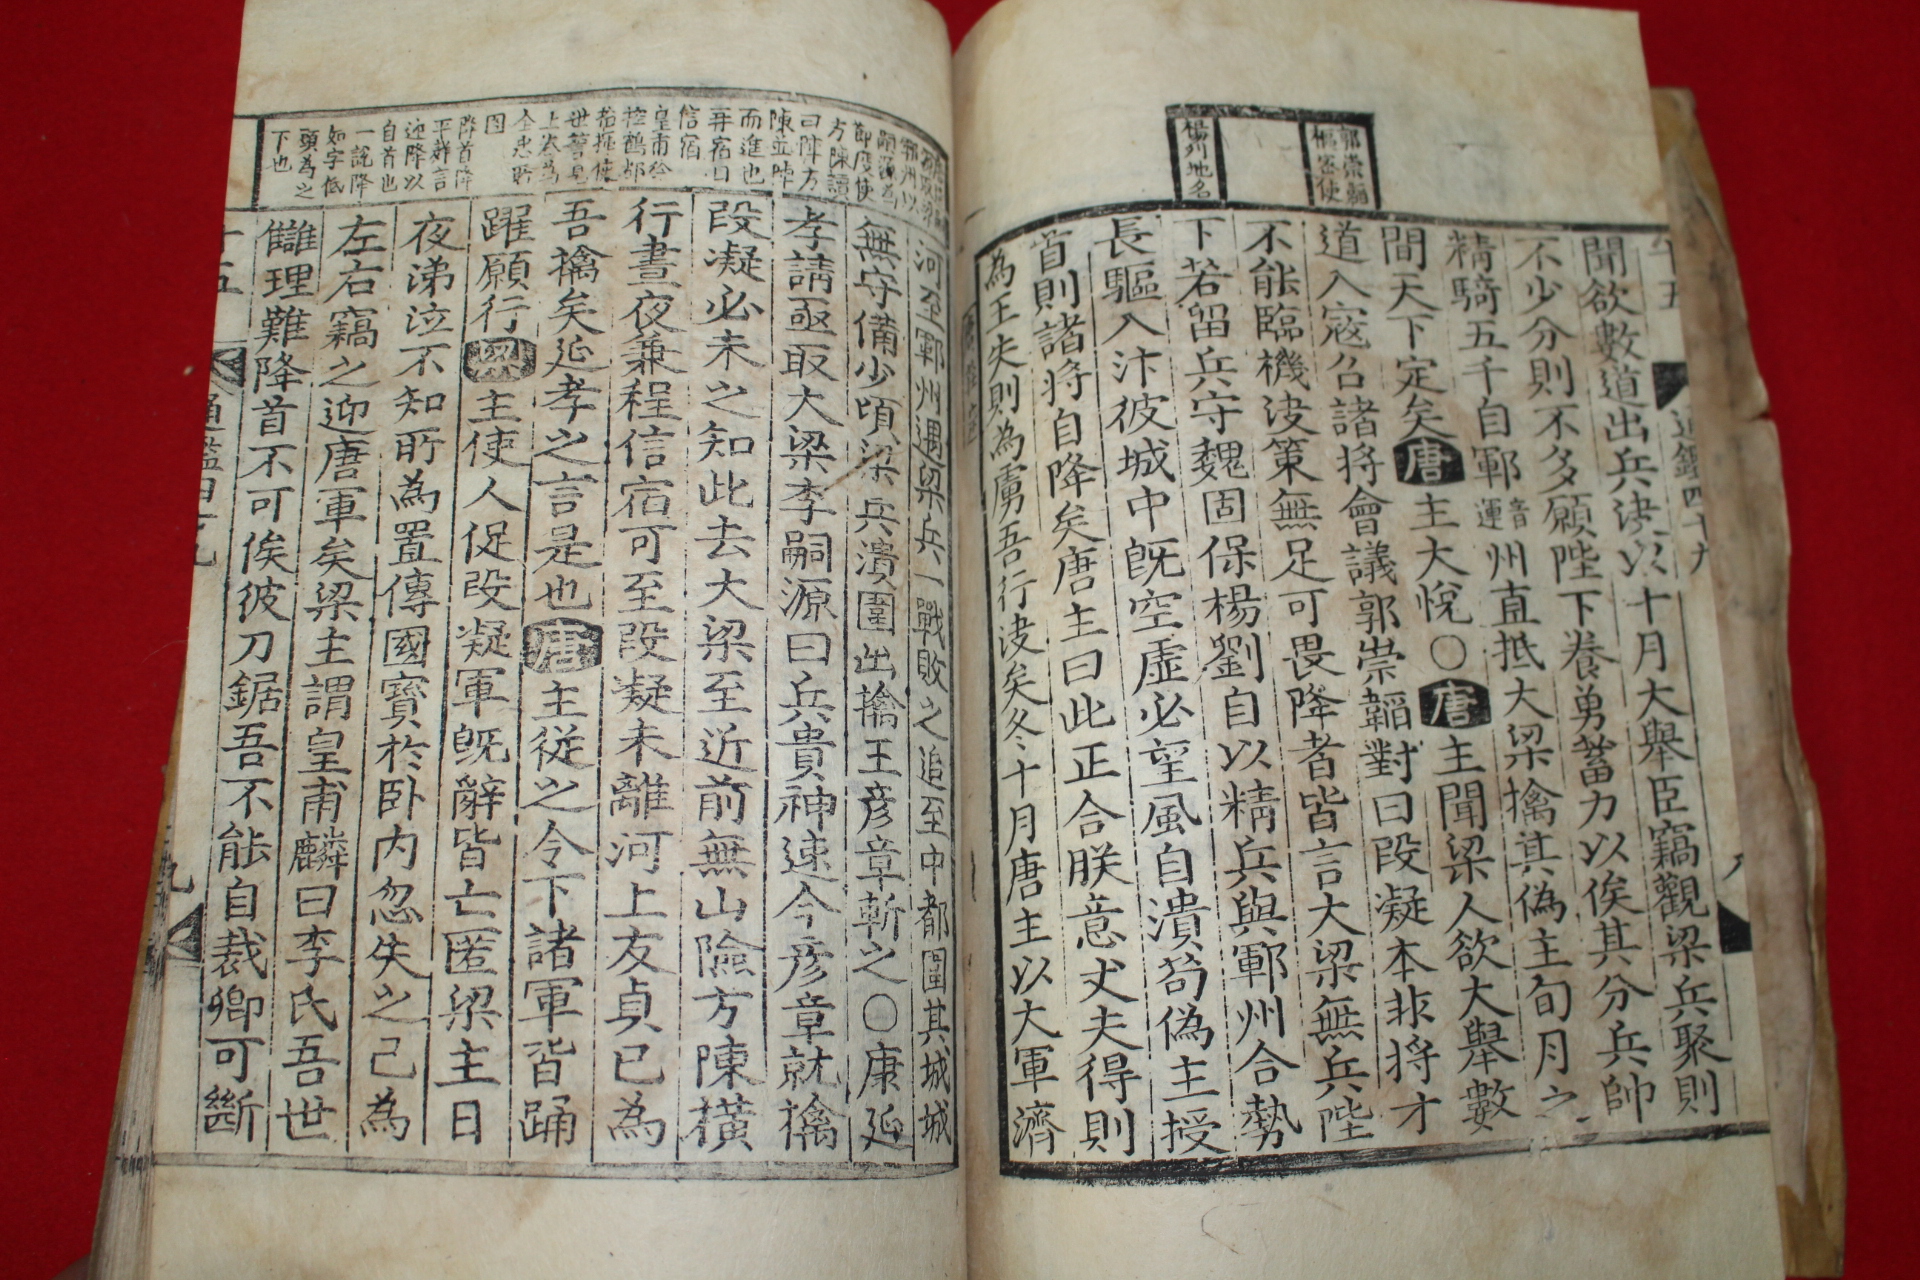 郭崇韜
樞密使
楊列地名
聞欲數道出兵決以十月大舉臣竊觀梁兵聚則
不少分則不多願陛下養勇蓄力以俟其分兵帥
精騎五千自鄆音運州直抵大梁擒其偽主旬月之
間天下定矣唐主大悅○唐主聞梁人欲大舉數
道入寇召諸將會議郭崇韜對曰段凝本非將才
不能臨機決策無足可畏降者皆言大梁無兵陛
下若留兵守魏固保楊劉自以精兵與鄆州合勢
長驅入汴彼城中既空虛必望風自潰苟偽主授
首則諸將自降矣唐主曰此正合朕意丈夫得則
為王失則為虜吾行決矣冬十月唐主以大軍濟
河至鄆州遇梁兵一戰敗之追至中都圍其城城
無守備少頃梁兵潰圍出擒王彥章斬之○康延
孝請亟取大梁李嗣源曰兵貴神速今彥章就擒
段凝必未之知此去大梁至近前無山險方陳橫
行晝夜兼程信宿可至段凝未離河上友貞已為
吾擒矣延孝之言是也唐主從之令下諸軍皆踴
躍願行梁主使人促段凝軍既辭皆亡匿梁主日
夜涕泣不知所為置傳國寶於臥內忽失之已為
左右竊之迎唐軍矣梁主謂皇甫麟曰李氏吾世
讎理難降首不可俟彼刀鋸吾不能自裁卿可斷
鄆州以
嗣源為
節度使
方陳讀
曰陣方
陳並陣
而進也
再宿曰
信宿
皇甫麟
控鶴都
指揮使
降首降
平辭言
迎降以
自首也
一說降
如字低
頭為之
下也
通鑑四十九
十五
九